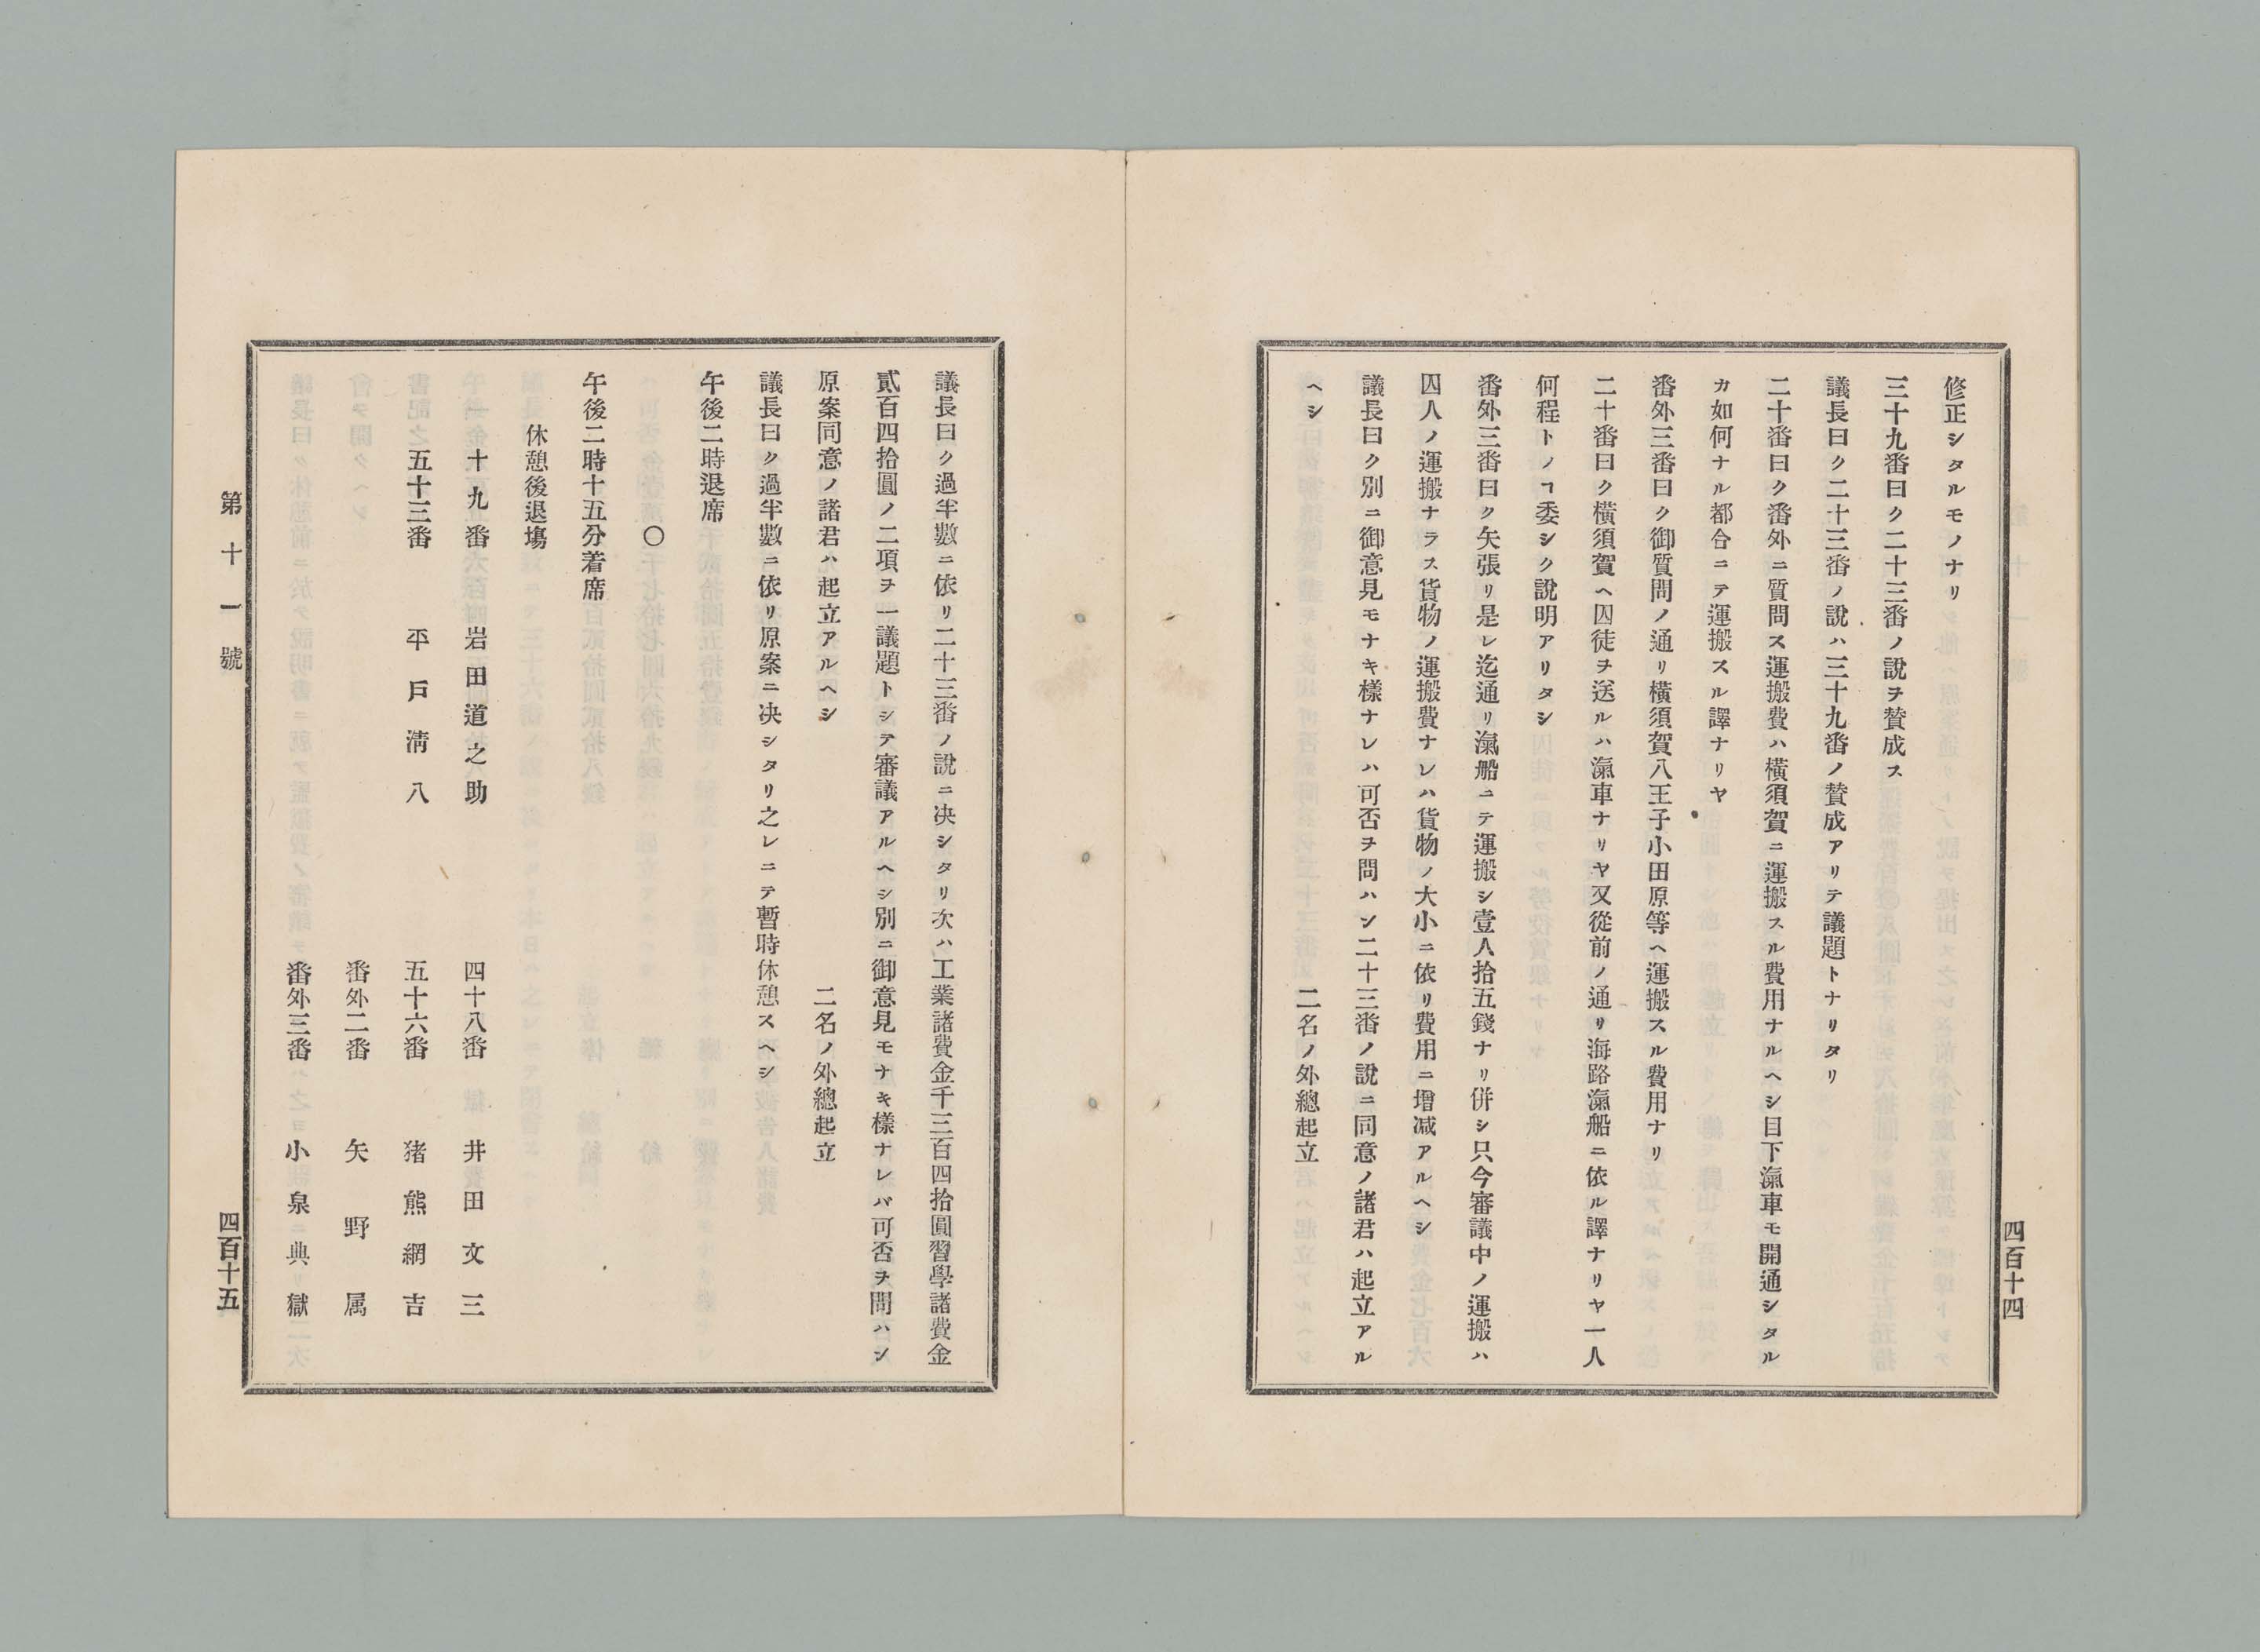 修正シタルモノナリ
三十九番曰ク二十三番ノ說ヲ賛成ス
議長曰ク二十三番ノ說ハ三十九番ノ賛成アリテ議題トナリタリ
二十番曰ク番外ニ質問ス運搬費ハ橫須賀ニ運搬スル費用ナルヘシ目下滊車モ開通シタル
カ如何ナル都合ニテ運搬スル譯ナリヤ
番外三番曰ク御質問ノ通リ橫須賀八王子小田原等ヘ運搬スル費用ナリ
二十番曰ク橫須賀ヘ囚徒ヲ送ルハ滊車ナリヤ又從前ノ通リ海路滊船ニ依ル譯ナリヤ一人
何程トノヿ委シク說明アリタシ
番外三番曰ク矢張リ是レ迄通リ滊船ニテ運搬シ壹人拾五錢ナリ併シ只今審議中ノ運搬ハ
囚人ノ運搬ナラス貨物ノ運搬費ナレハ貨物ノ大小ニ依リ費用ニ增减アルヘシ
議長曰ク別ニ御意見モナキ樣ナレハ可否ヲ問ハン二十三番ノ說ニ同意ノ諸君ハ起立アル
ヘシ
二名ノ外總起立
四百十四
議長曰ク過半數ニ依リ二十三番ノ說ニ决シタリ次ハ工業諸費金千三百四拾圓習學諸費金
貳百四拾圓ノ二項ヲ一議題トシテ審議アルヘシ別ニ御意見モナキ樣ナレバ可否ヲ問ハン
原案同意ノ諸君ハ起立アルヘシ
二名ノ外總起立
議長曰ク過半數ニ依リ原案ニ决シタリ之レニテ暫時休憩スヘシ
午後二時退席
〇
午後二時十五分着席
休憩後退塲
十九番 岩田道之助 四十八番 井田文三
五十三番 平戶淸八 五十六番 猪熊綱吉
番外二番 矢野属
番外三番 小泉典獄
第十一號
四百十五